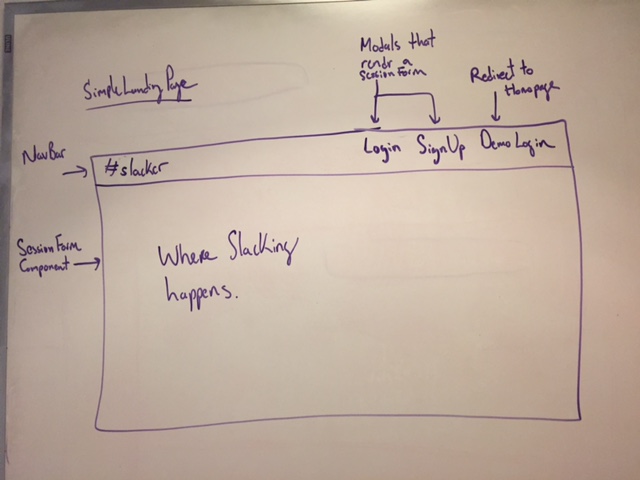 Simple Landing Page
Modals that
rendr a
Session Form
Redirect to
Homepage
NavBar
#slacker
Login
SignUp
Demo Login
Session Form
Component
Where Slacking
happens.